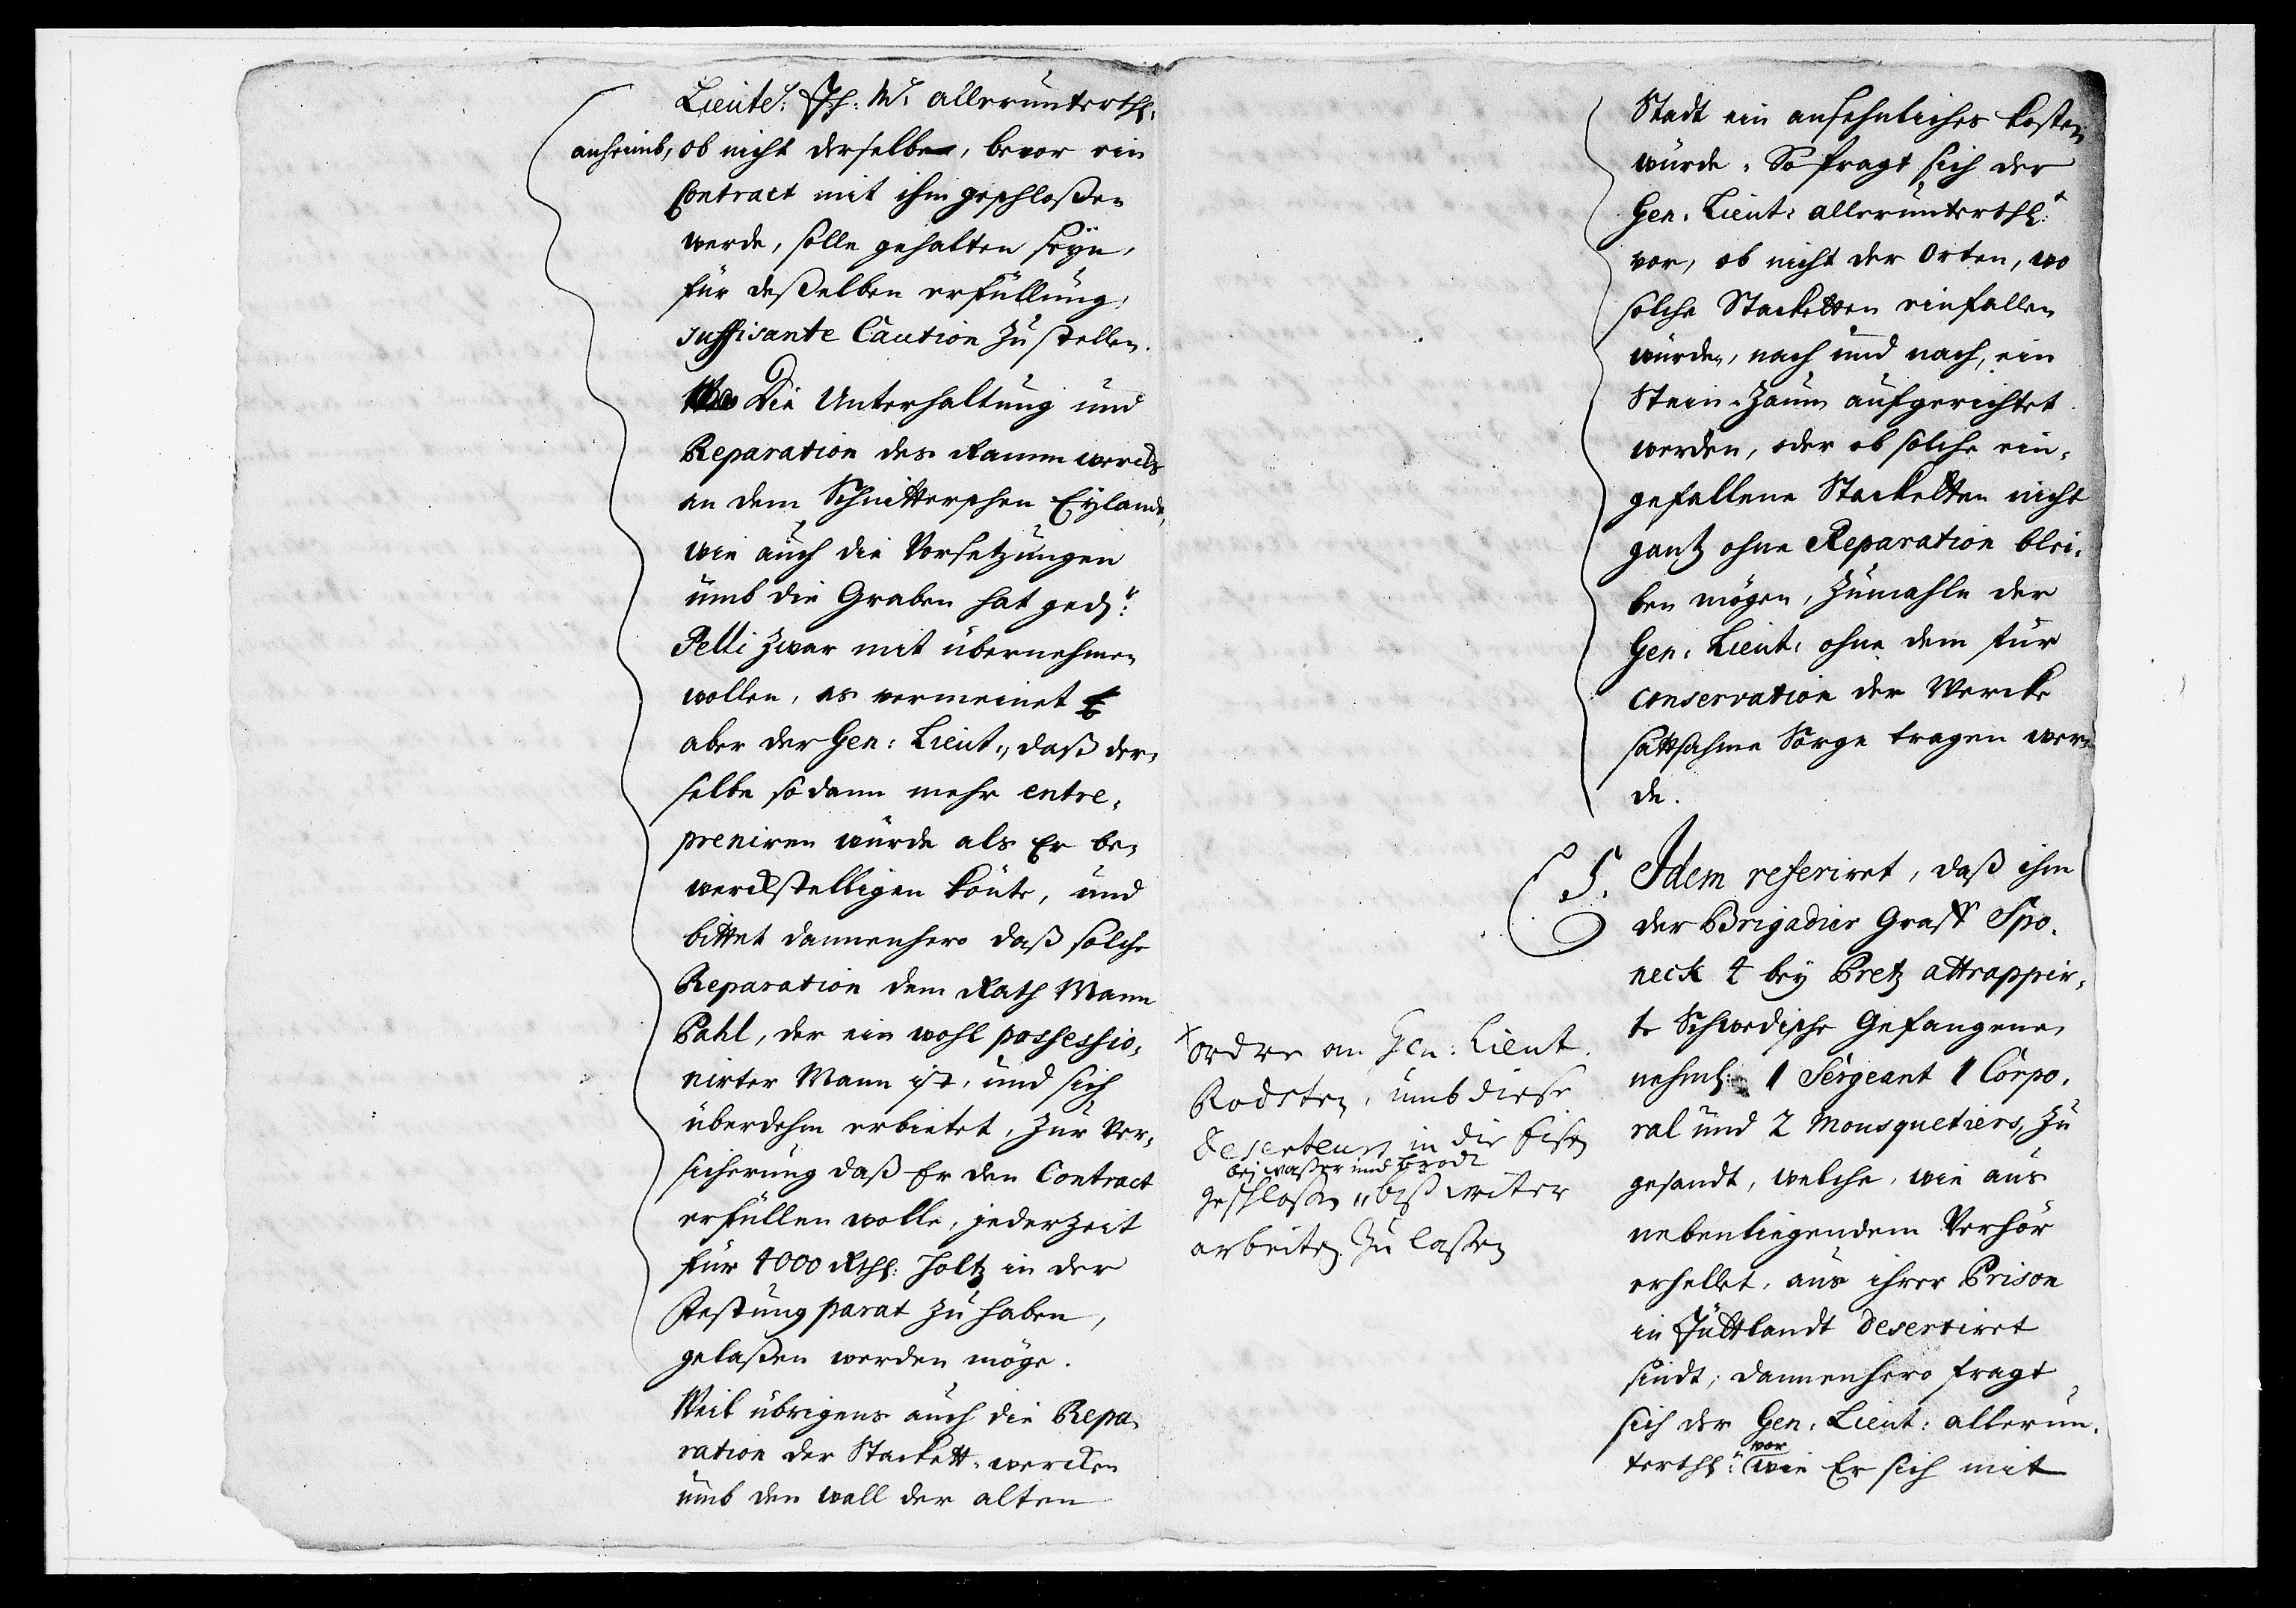 Lieute: Ih: M: allerunterth:
anheimb, ob nicht derselbe, bevor ein
Contract mit ihm geschloßen
werde, solle gehalten seyn,
für deßelben erfüllung,
suffisante Caution zu stellen.
Die Unterhaltung und
Reparation des Rammwercks
an dem Schnitterschen Eylande,
wie auch die Vorsetzungen
umb die Graben hat ged:
Pelli zwar mit übernehmen
wollen, es vermeinet
aber der Gen: Lieut:, daß der-
selbe sodann mehr entre-
preniren würde als Er be-
werckstelligen könte, und
bittet dannenhero daß solche
Reparation dem Rath Mann
Pahl, der ein wohl possessio-
nirter Mann ist, und sich
überdehm erbietet, zur Ver-
sicherung daß Er den Contract
erfüllen wolle, jederzeit
für 4000 Rthl: Holtz in der
Festung parat zu haben,
gelaßen werden möge.
Weil übrigens auch die Repa-
ration der Stackett-wercken
umb den wall der alten
Stadt ein ansehnliches kosten
würde. So fragt sich der
Gen: Lieut: allerunterthl:
vor, ob nicht der Orten, wo
solche Stacketten einfallen
würden, nach und nach, ein
Stein-Zaun aufgerichtet
werden, oder ob solche ein-
gefallene Stacketten nicht
gantz ohne Reparation blei-
ben mögen, zumahle der
Gen: Lieut: ohne dem für
conservation der Wercke
sattsahme Sorge tragen wer-
de.
5. Idem referiret, daß ihm
der Brigadier Graff Spo-
neck 4 bey Pretz attrappir-
te Schwedische Gefangene,
nehml: 1 Sergeant 1 Corpo-
ral und 2 Mousquetiers, zu
gesandt, welche, wie aus
nebenliegendem Verhör
erhellet, aus ihrer Prison
in Jüttlandt desertiret
sindt; dannenhero fragt
sich der Gen: Lieut: allerun-
terthl: vor wie Er sich mit
x ordre an Gen: Lieut.
Rodsten, umb diese
deserteurs in die Eisen
bei waßer und brodt
geschloßen biß weiter
arbeiten zu laßen